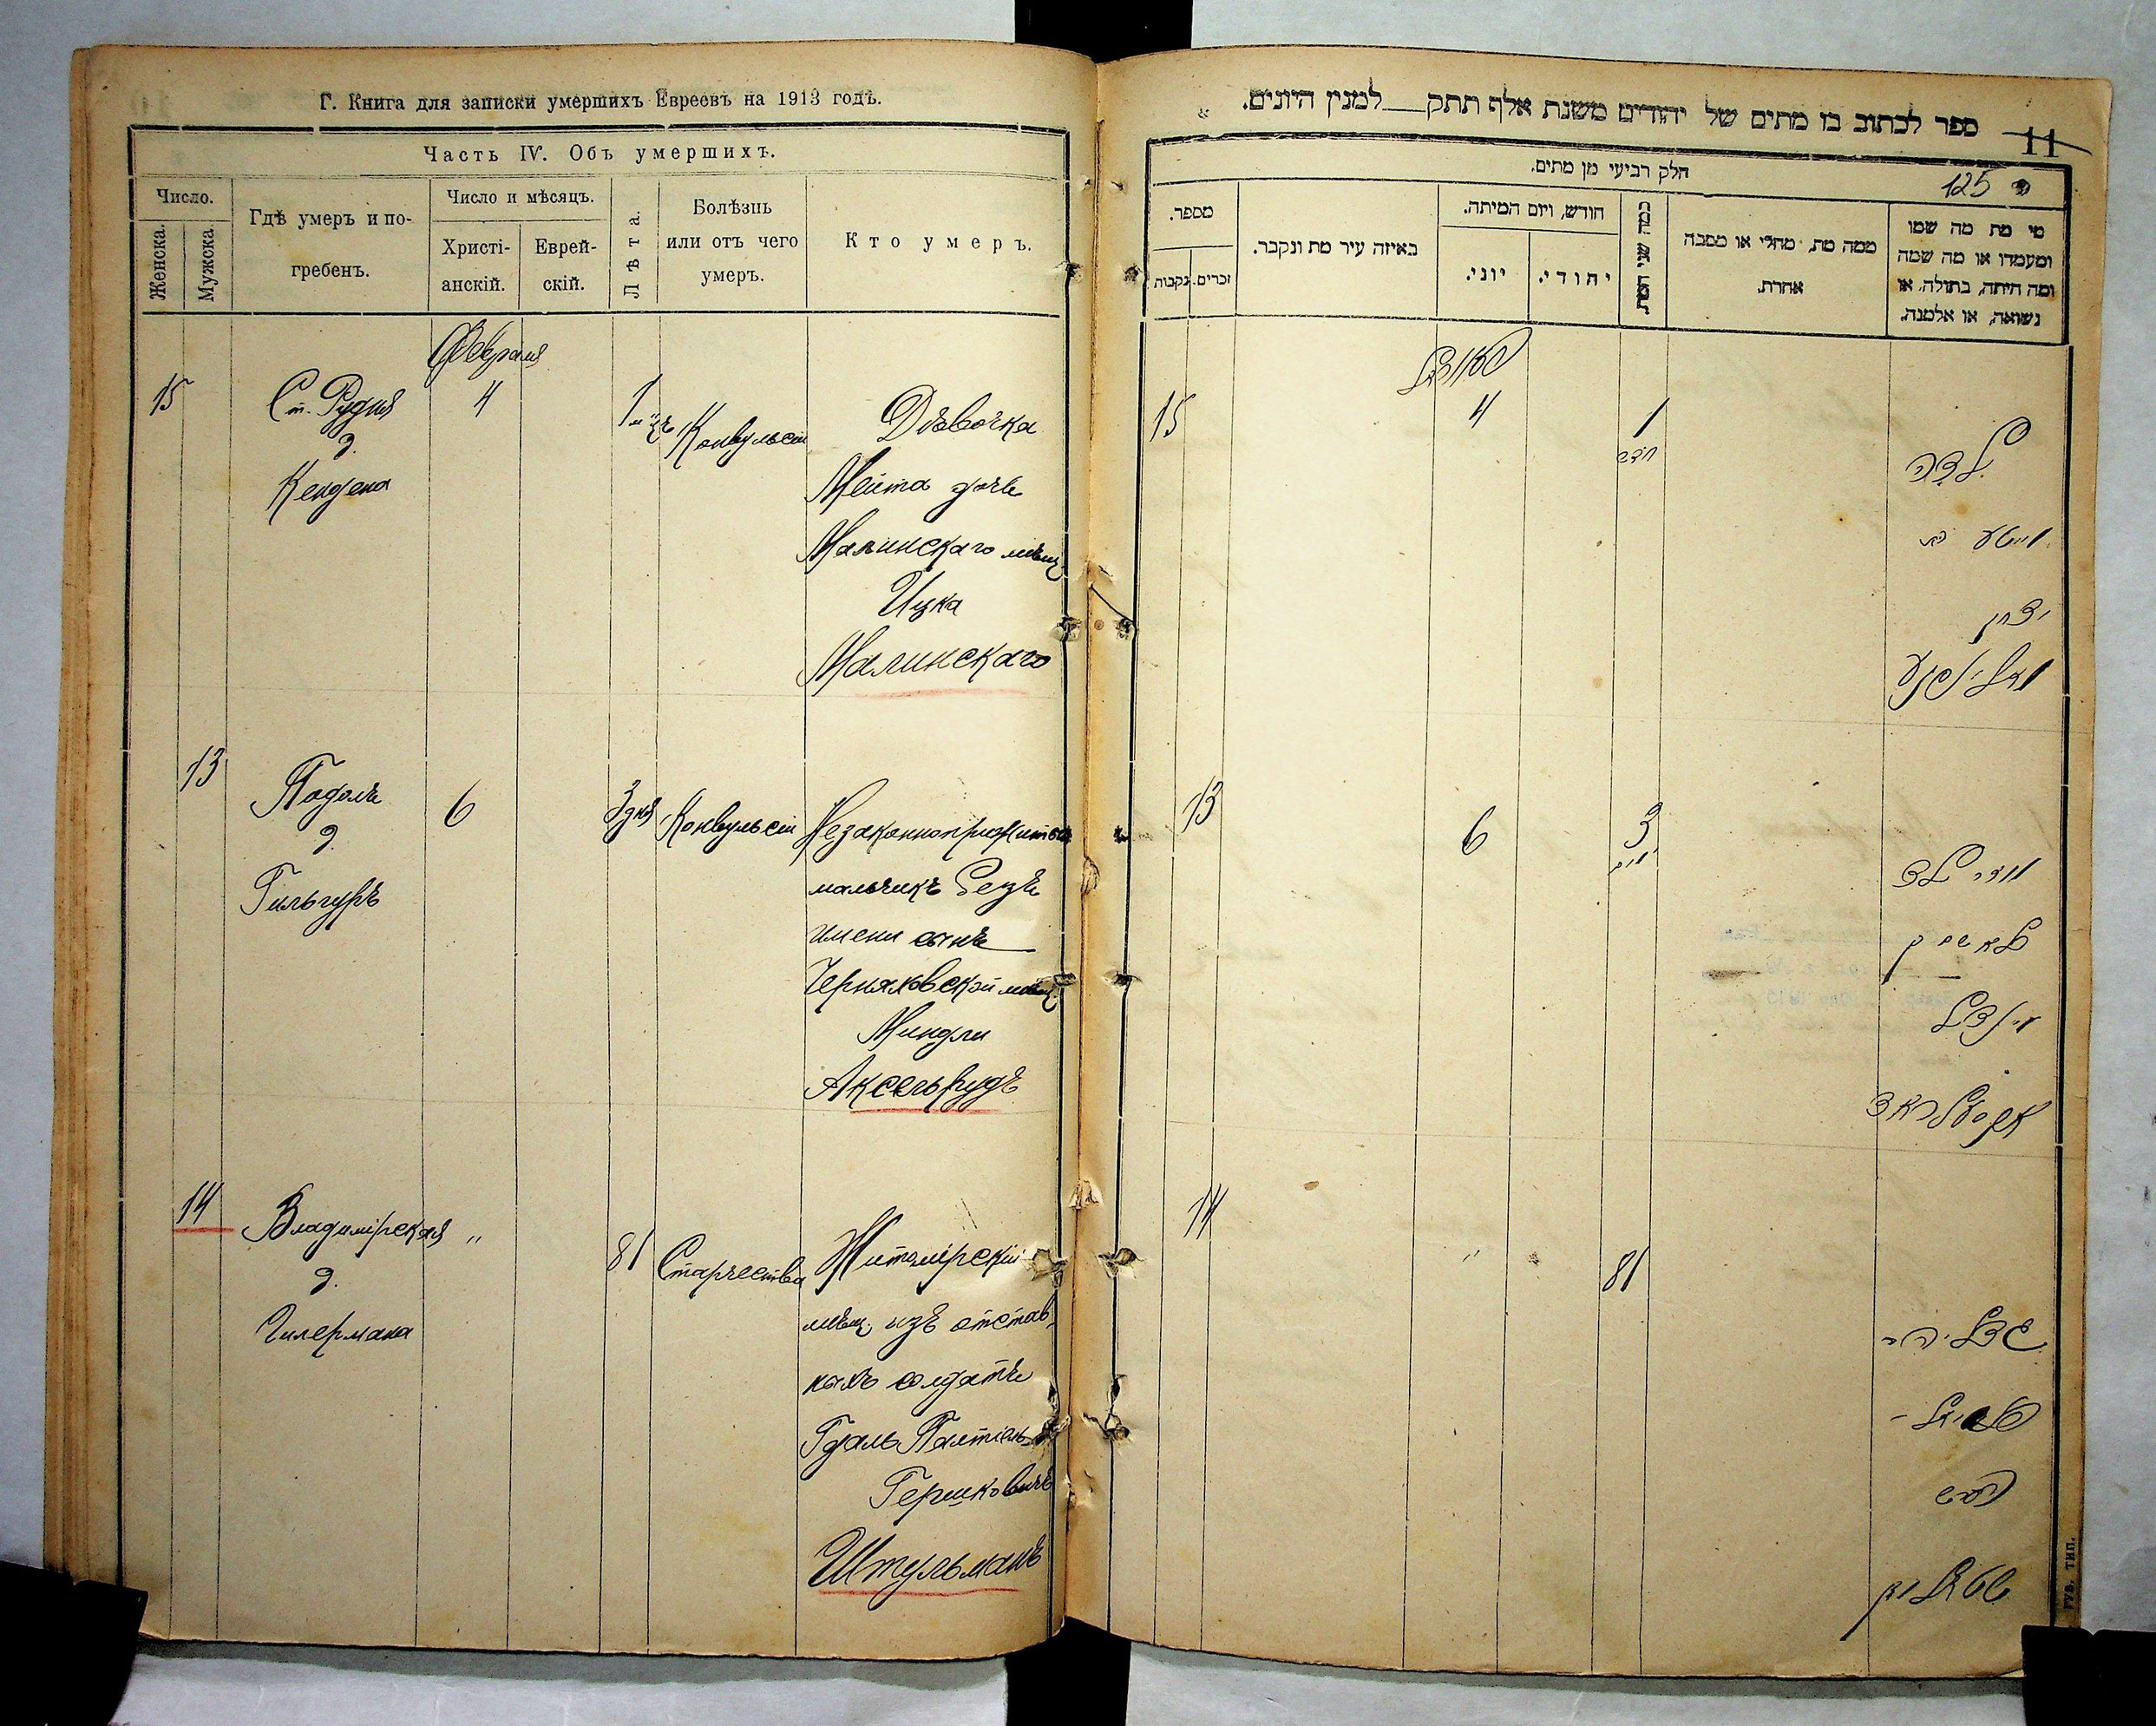 Г. Книга для записки умершихъ Евреевъ на 1913 годъ.
Часть IV. Объ умершихъ.
Число.
Женска.
Мужска.
Гдѣ умеръ и по-
гребенъ.
Число и мѣсяцъ.
Христі-
анскій.
Еврей-
скій.
Лѣта.
Болѣзнь
или отъ чего
умеръ.
Кто умеръ.
Февраля
15
Ст. Рудня
д.
4
1 м-цъ
Конвульсіи
Дѣвочка
Мейта дочь
Малинскаго мѣщ.
Ицка
Малинскаго
13
Подолъ
д.
6
3 дня
Конвульсіи
Незаконнорожд
мальчикъ безъ
имени сынъ
Черняховской мѣщ.
Миндли
Аксельрудъ
14
Владимірская
д.
"
81
Старчества
Житомірскій
мѣщ. изъ отстав
ныхъ солдатъ
Гдаль Палтіель
Гершковичъ
Штульманъ
ספר לכתוב בו מתים של יהודים משנת אלף תתק למנין היונים.
11
125
חלק רביעי מן מתים.
מספר.
זכרים.
נקבות
באיזה עיר מת ונקבר.
חודש, ויום המיתה.
יוני.
יהודי.
כמה שני המת
ממה מת, מחלי או מסבה
אחרת.
מי מת מה שמו
ומעמדו או מה שמה
ומה היתה, בתולה, או
נשואה, או אלמנה.
15
4
1
חדש
ילדה
בת
יצחק
מאלינסקי
13
6
3
ימים
ילד
מינדל
אקסעלראד
14
"
81
גדליהו
פלטיאל
הירש
שטולמאן
губ. тип.